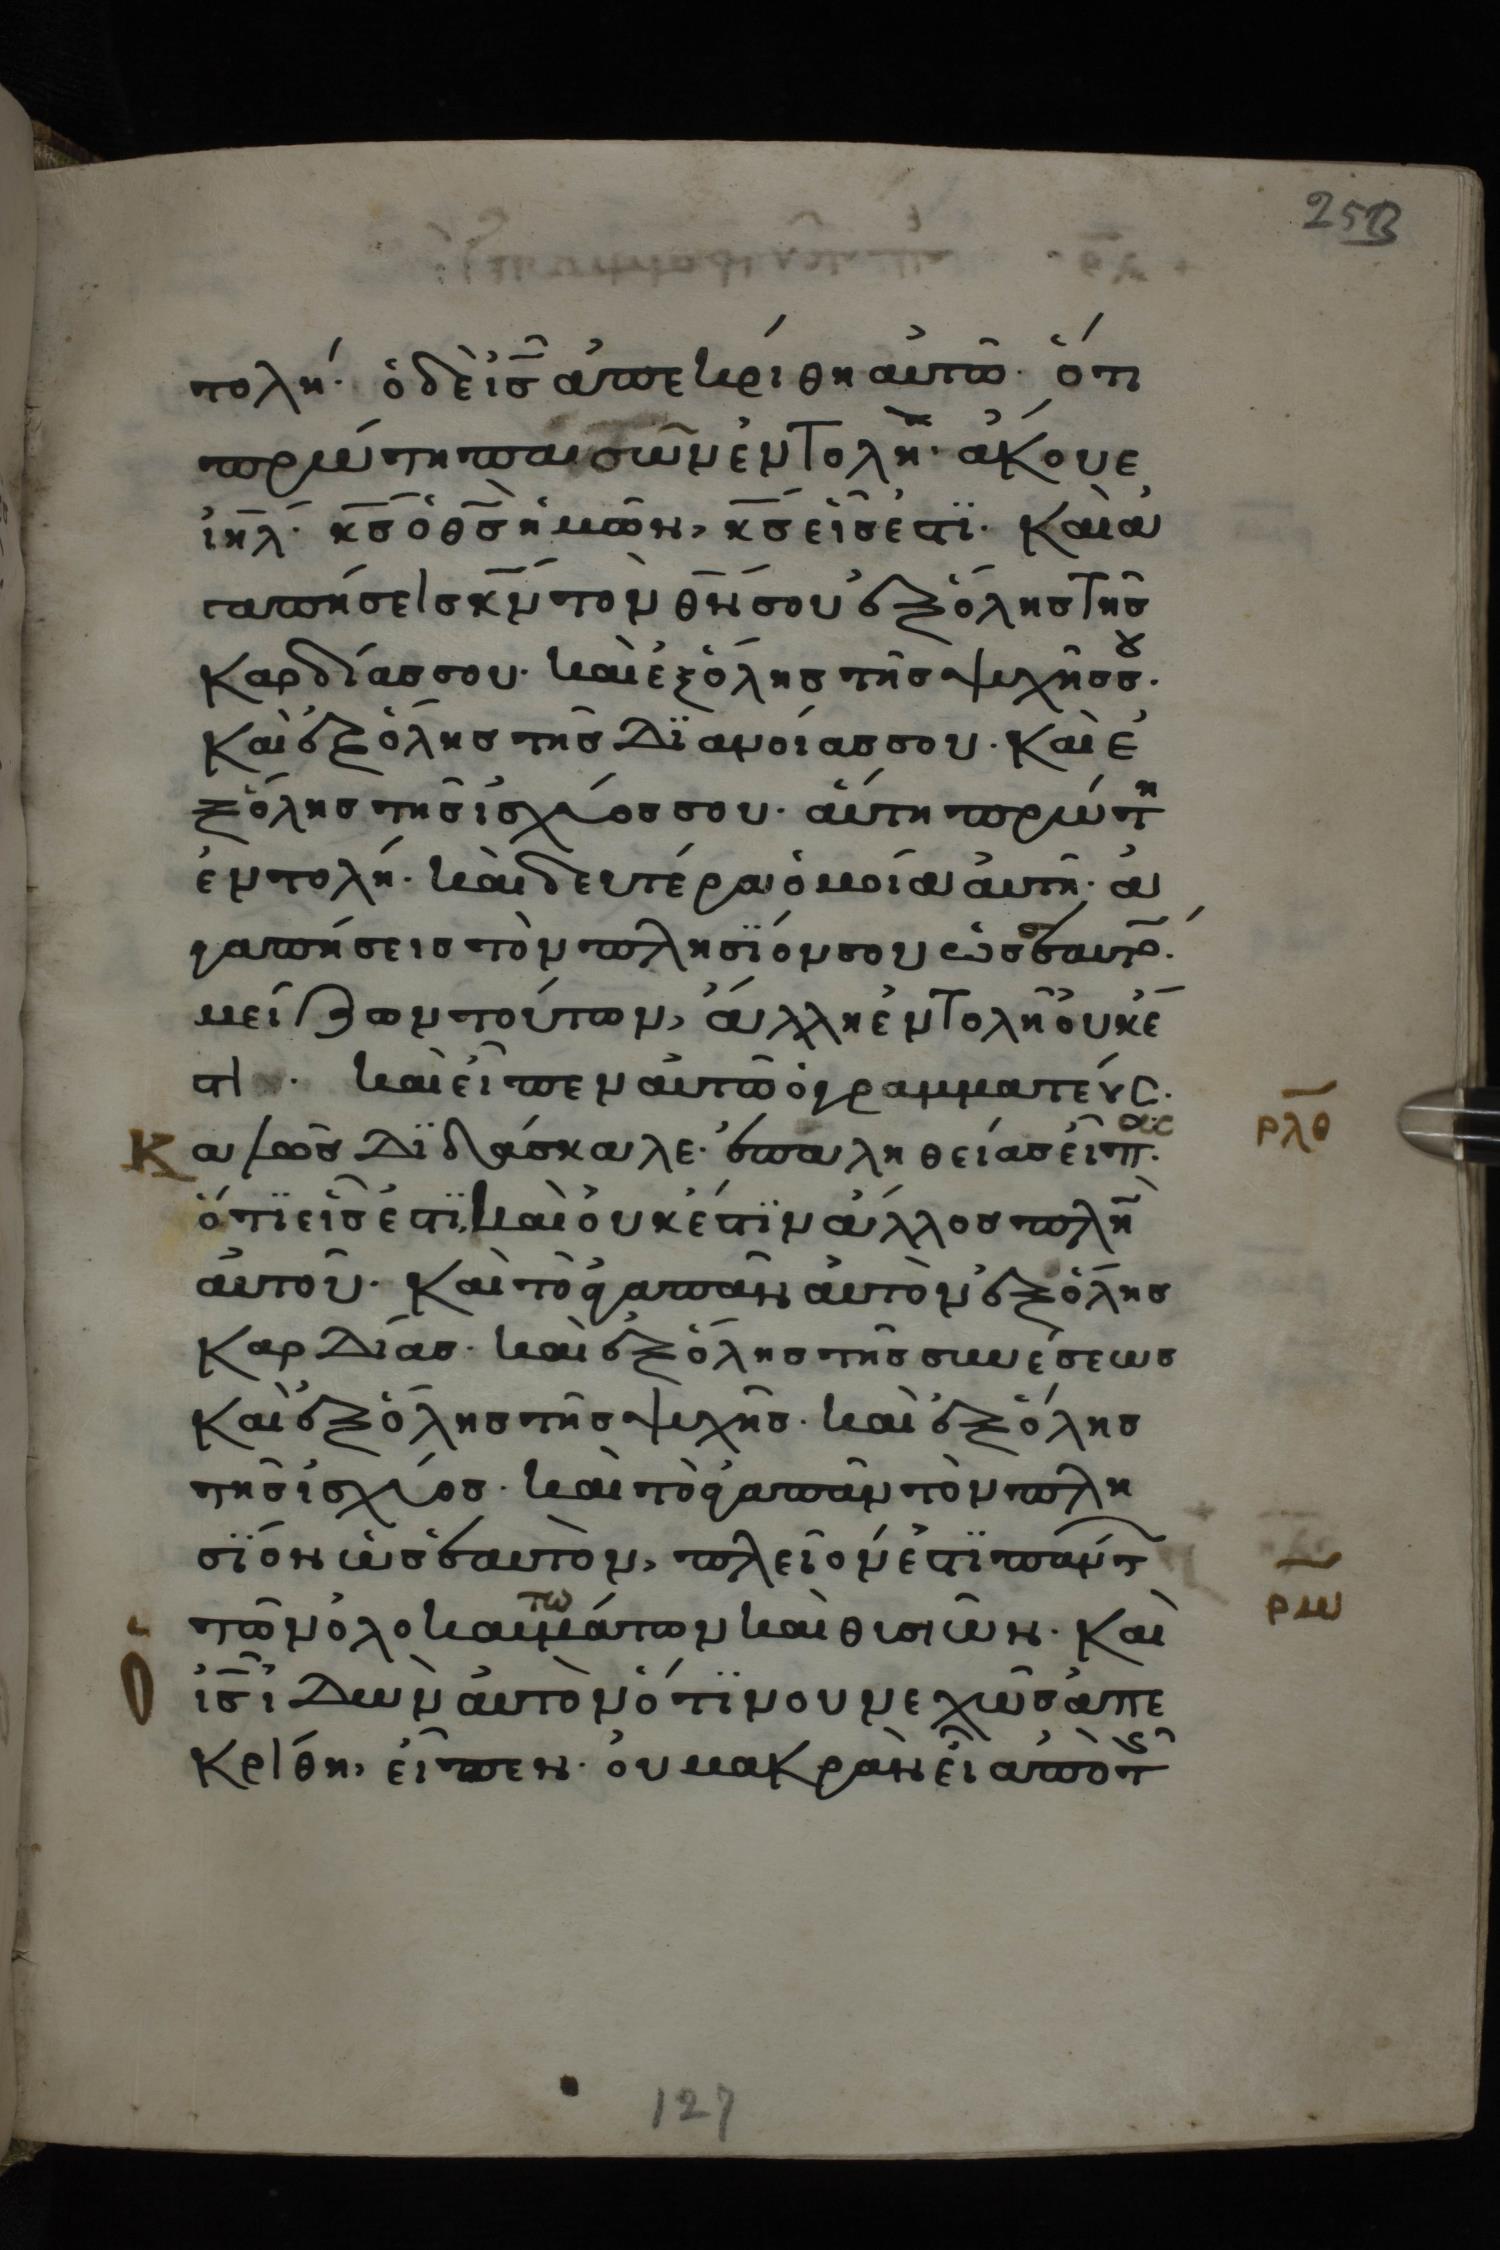 253
τολή· ὁ δὲ ις̅ ἀπεκρίθη αὐτῶ· ὅτι
πρώτη πασῶν ἐντολὴ· ἄκουε
ιη̅λ· κ̅ς ὁ θ̅ς ἡμῶν, κ̅ς εἷς ἐστϊ· Καὶ ἀ
γαπήσεις κ̅ν τὸν θ̅ν σου ἐξ ὅλης τῆς
καρδίας σου· καὶ ἐξ ὅλης τῆς ψυχῆς σου·
Καὶ ἐξ ὅλης τῆς διανοίας σου· Καὶ ἐ
ξ ὅλης τῆς ἰσχύος σου· αὕτη πρώτη
ἐντολή· καὶ δευτέρα ὁμοία αὐτῆ· ἀ
γαπήσεις τὸν πλησίον σου ὡς ἑαυτο·
μείζων τούτων, ἄλλη ἐντολὴ οὐκ ἔ
στι· καὶ εἶπεν αὐτῶ ὁ γραμματεύς·
Καλῶς διδάσκαλε· ἐπ αληθείας εἶπας·
ρλθ
ὅτϊ εἷς ἐστϊ, καὶ οὐκ ἔστϊν ἄλλος πλὴ
αὐτοῦ· Καὶ τὸ ἀγαπᾶν αὐτὸν ἐξ ὅλης
καρδίας· καὶ ἐξ ὅλης τῆς συνέσεως
Καὶ ἐξ ὅλης τῆς ψυχῆς· καὶ ἐξ ὅλης
τῆς ἰσχύος· καὶ τὸ ἀγαπᾶν τὸν πλη
σϊον ὡς ἑαυτὸν, πλεῖον ἐστϊ πάντ
τῶν ὁλοκαυτωμάτων καὶ θυσιῶν· Καὶ
ρμ
ὁ ις̅ ἰδὼν αὐτὸν ὅτϊ νουνεχῶς ἀπε
κρίθη, εἶπεν· οὐ μακρὰν εἶ ἀπὸ τῆς
127